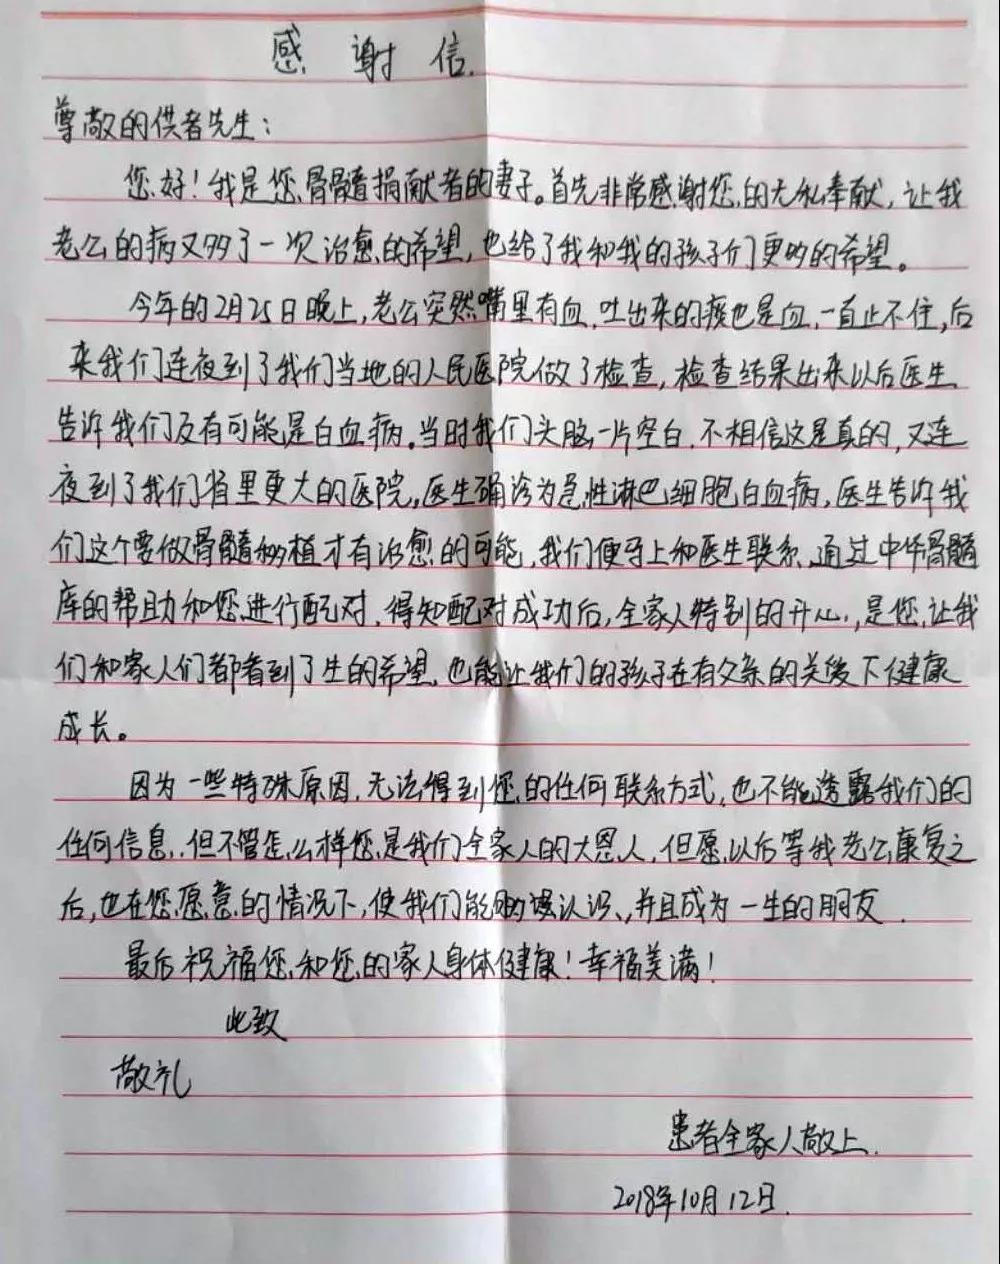 感谢信.
尊敬的供者先生：
您好！我是您骨髓捐献者的妻子。首先非常感谢您的无私奉献，让我
老公的病又多了一次治愈的希望，也给了我和我的孩子们更多的希望。
今年的2月25日晚上，老公突然嘴里有血，吐出来的痰也是血，一直止不住，后
来我们连夜到了我们当地的人民医院做了检查，检查结果出来以后医生
告诉我们及有可能是白血病。当时我们头脑一片空白，不相信这是真的，又连
夜到了我们省里更大的医院，医生确诊为急性淋巴细胞白血病，医生告诉我
们这个要做骨髓移植才有治愈的可能，我们便马上和医生联系，通过中华骨髓
库的帮助和您进行配对，得知配对成功后，全家人特别的开心，是您让我
们和家人们都看到了生的希望，也能让我们的孩子在有父亲的关爱下健康
成长。
因为一些特殊原因，无法得到您的任何联系方式，也不能透露我们的
任何信息，但不管怎么样您是我们全家人的大恩人，但愿以后等我老公康复之
后，也在您愿意的情况下，使我们能够认识，并且成为一生的朋友.
最后祝福您和您的家人身体健康！幸福美满！
此致
敬礼
患者全家人敬上.
2018年10月12日.